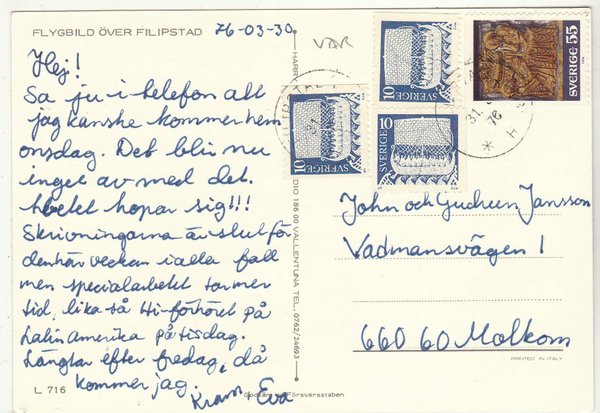 FLYGBILD ÖVER FILIPSTAD
76-03-30
Hej!
Sa ju i telefon att
jag kanske kommer hem
onsdag. Det blir nu
inget av med det.
Arbetet hopar sig!!!
Skrivningarna är slut för
den här veckan i alla fall
men specialarbetet tar mer
tid, lika så Hi-förhöret på
Latinamerika på tisdag.
Längtar efter fredag, då
kommer jag.
Kram, Eva
L 716
VAR
HARRY
DIO 186 00 VALLENTUNA TEL. 0762/24693
Godkän Försvarsstaben
SVERIGE 10
SVERIGE 10
SVERIGE 10
SVERIGE 55
31.
76
* H
John och Gudrun Jansson
Vadmansvägen 1
660 60 Molkom
PRINTED IN ITALY